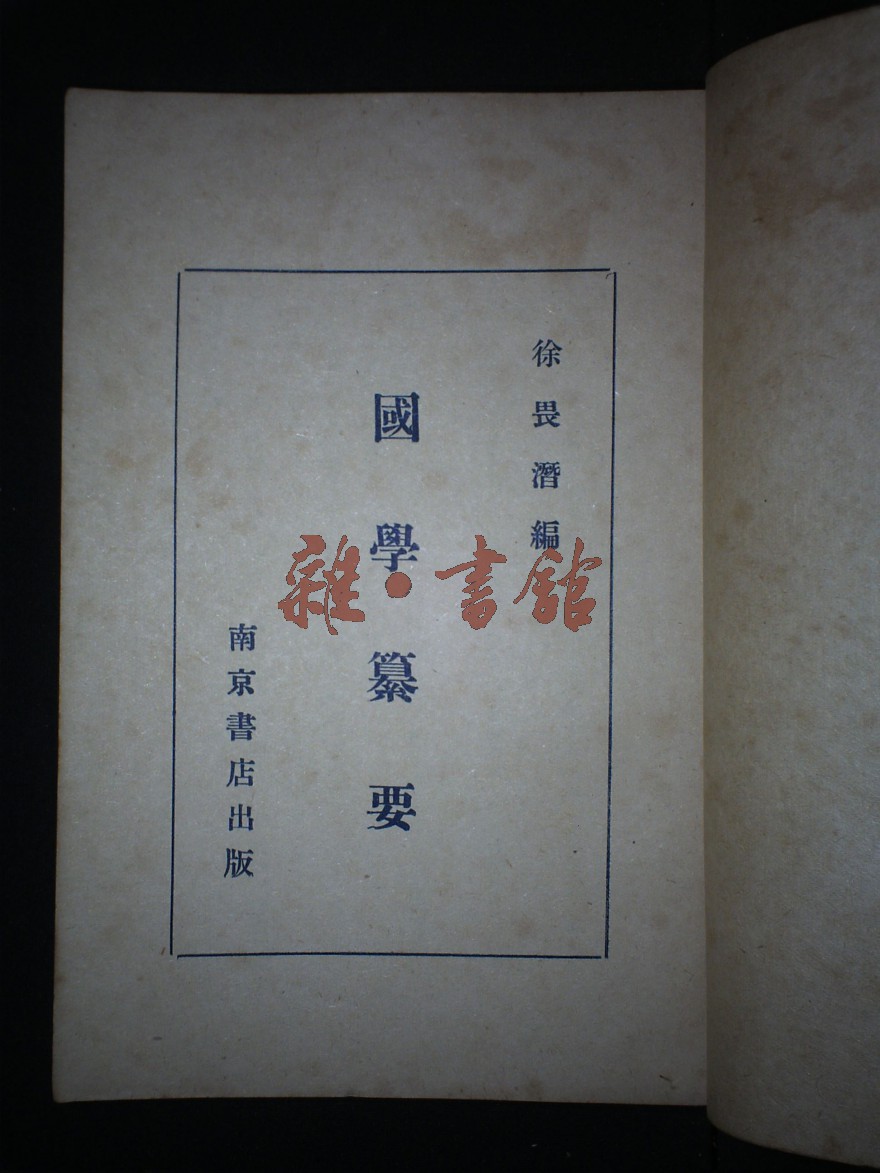 徐畏潛編
國學纂要
南京書店出版
雜·書館